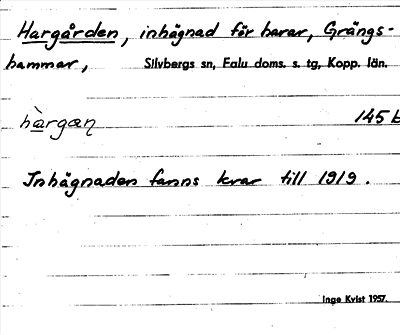 Hargården, inhägnad för harar, Grängs-
hammar, Silvbergs sn, Falu doms. s. tg, Kopp. län.
hàrgæɳ 145 b
Inhägnaden fanns kvar till 1919.
Inge Kvist 1957.